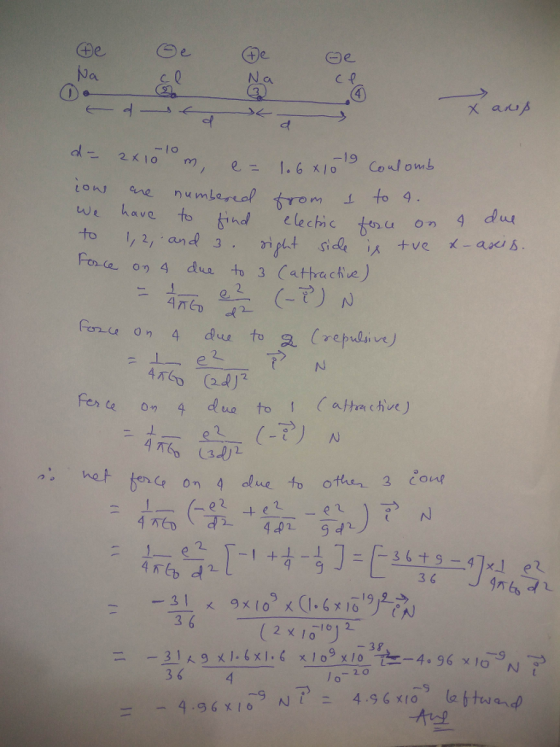 ⊕e ⊖e ⊕e ⊖e
Na cl Na cl
① ② ③ ④
d d d x axis
d = 2×10⁻¹⁰ m, e = 1.6×10⁻¹⁹ Coulomb
ions are numbered from 1 to 4.
We have to find electric force on 4 due
to 1, 2, and 3. right side is +ve x-axis.
Force on 4 due to 3 (attractive)
= 1/4πϵ₀ e²/d² (-i⃗) N
Force on 4 due to 2 (repulsive)
= 1/4πϵ₀ e²/(2d)² i⃗ N
Force on 4 due to 1 (attractive)
= 1/4πϵ₀ e²/(3d)² (-i⃗) N
∴ net force on 4 due to other 3 ions
= 1/4πϵ₀ (-e²/d² + e²/4d² - e²/9d²) i⃗ N
= 1/4πϵ₀ e²/d² [-1 + 1/4 - 1/9] = [-36+9-4/36] × 1/4πϵ₀ e²/d²
= -31/36 × 9×10⁹ × (1.6×10⁻¹⁹)²/(2×10⁻¹⁰)² i⃗ N
= -31/36 × 9×1.6×1.6/4 × 10⁹×10⁻³⁸/10⁻²⁰ i⃗ = -4.96×10⁻⁹ N i⃗
= -4.96×10⁻⁹ N i⃗ = 4.96×10⁻⁹ leftward
Ans